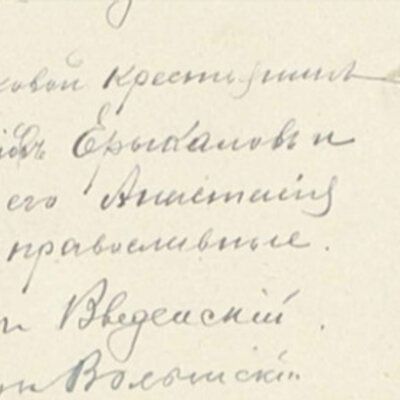 ковой крестьянинъ
Ерыкаловъ и
его Анастасія
православные.
Введенскій.